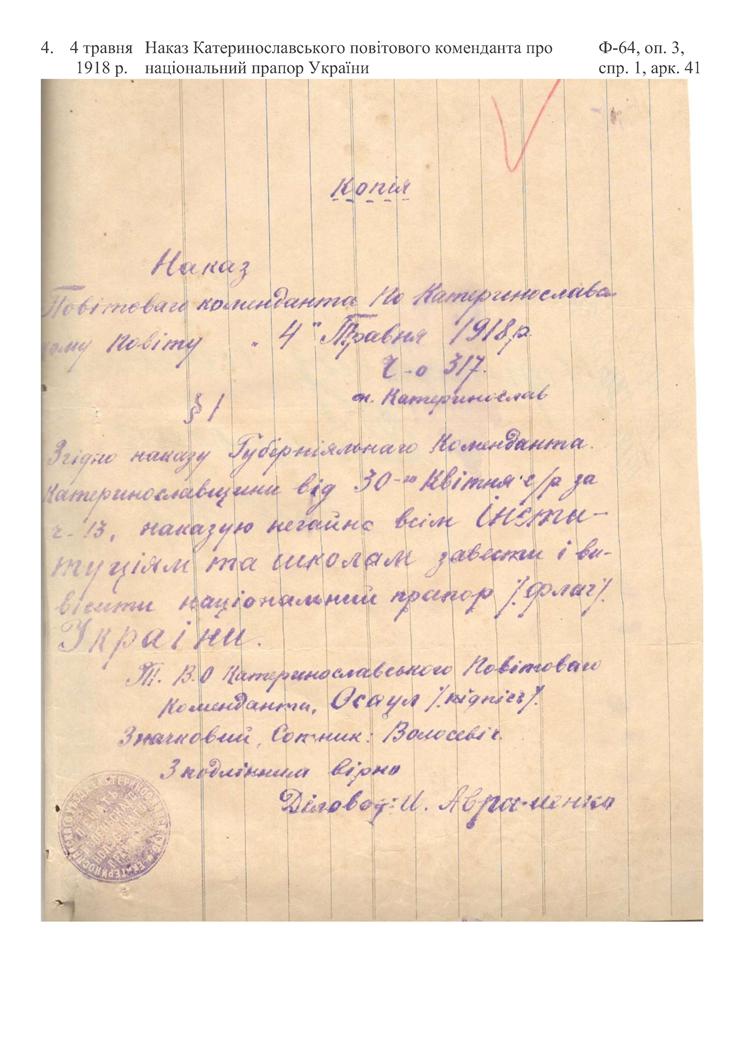 4. 4 травня 1918 р. Наказ Катеринославського повітового коменданта про національний прапор України Ф-64, оп. 3, спр. 1, арк. 41
Копія
Наказ
Повітоваго коменданта По Катеринославс-
кому Повіту „4" Травня 1918 р.
Ч-о 317.
м. Катеринослав
§ 1
Згідно наказу Губерніяльнаго Коменданта
Катеринославщини від 30-го Квітня с/р за
ч. 13, наказую негайно всім Інсти-
туціям та школам завести і ви-
вісити національний прапор /флаг/.
України.
Т. В.О Катеринославського Повітоваго
Коменданта, Осаул /підпісь/.
Значковий, Сотник: Волосевіч.
З подлінним вірно
Діловод: И. Авраменко